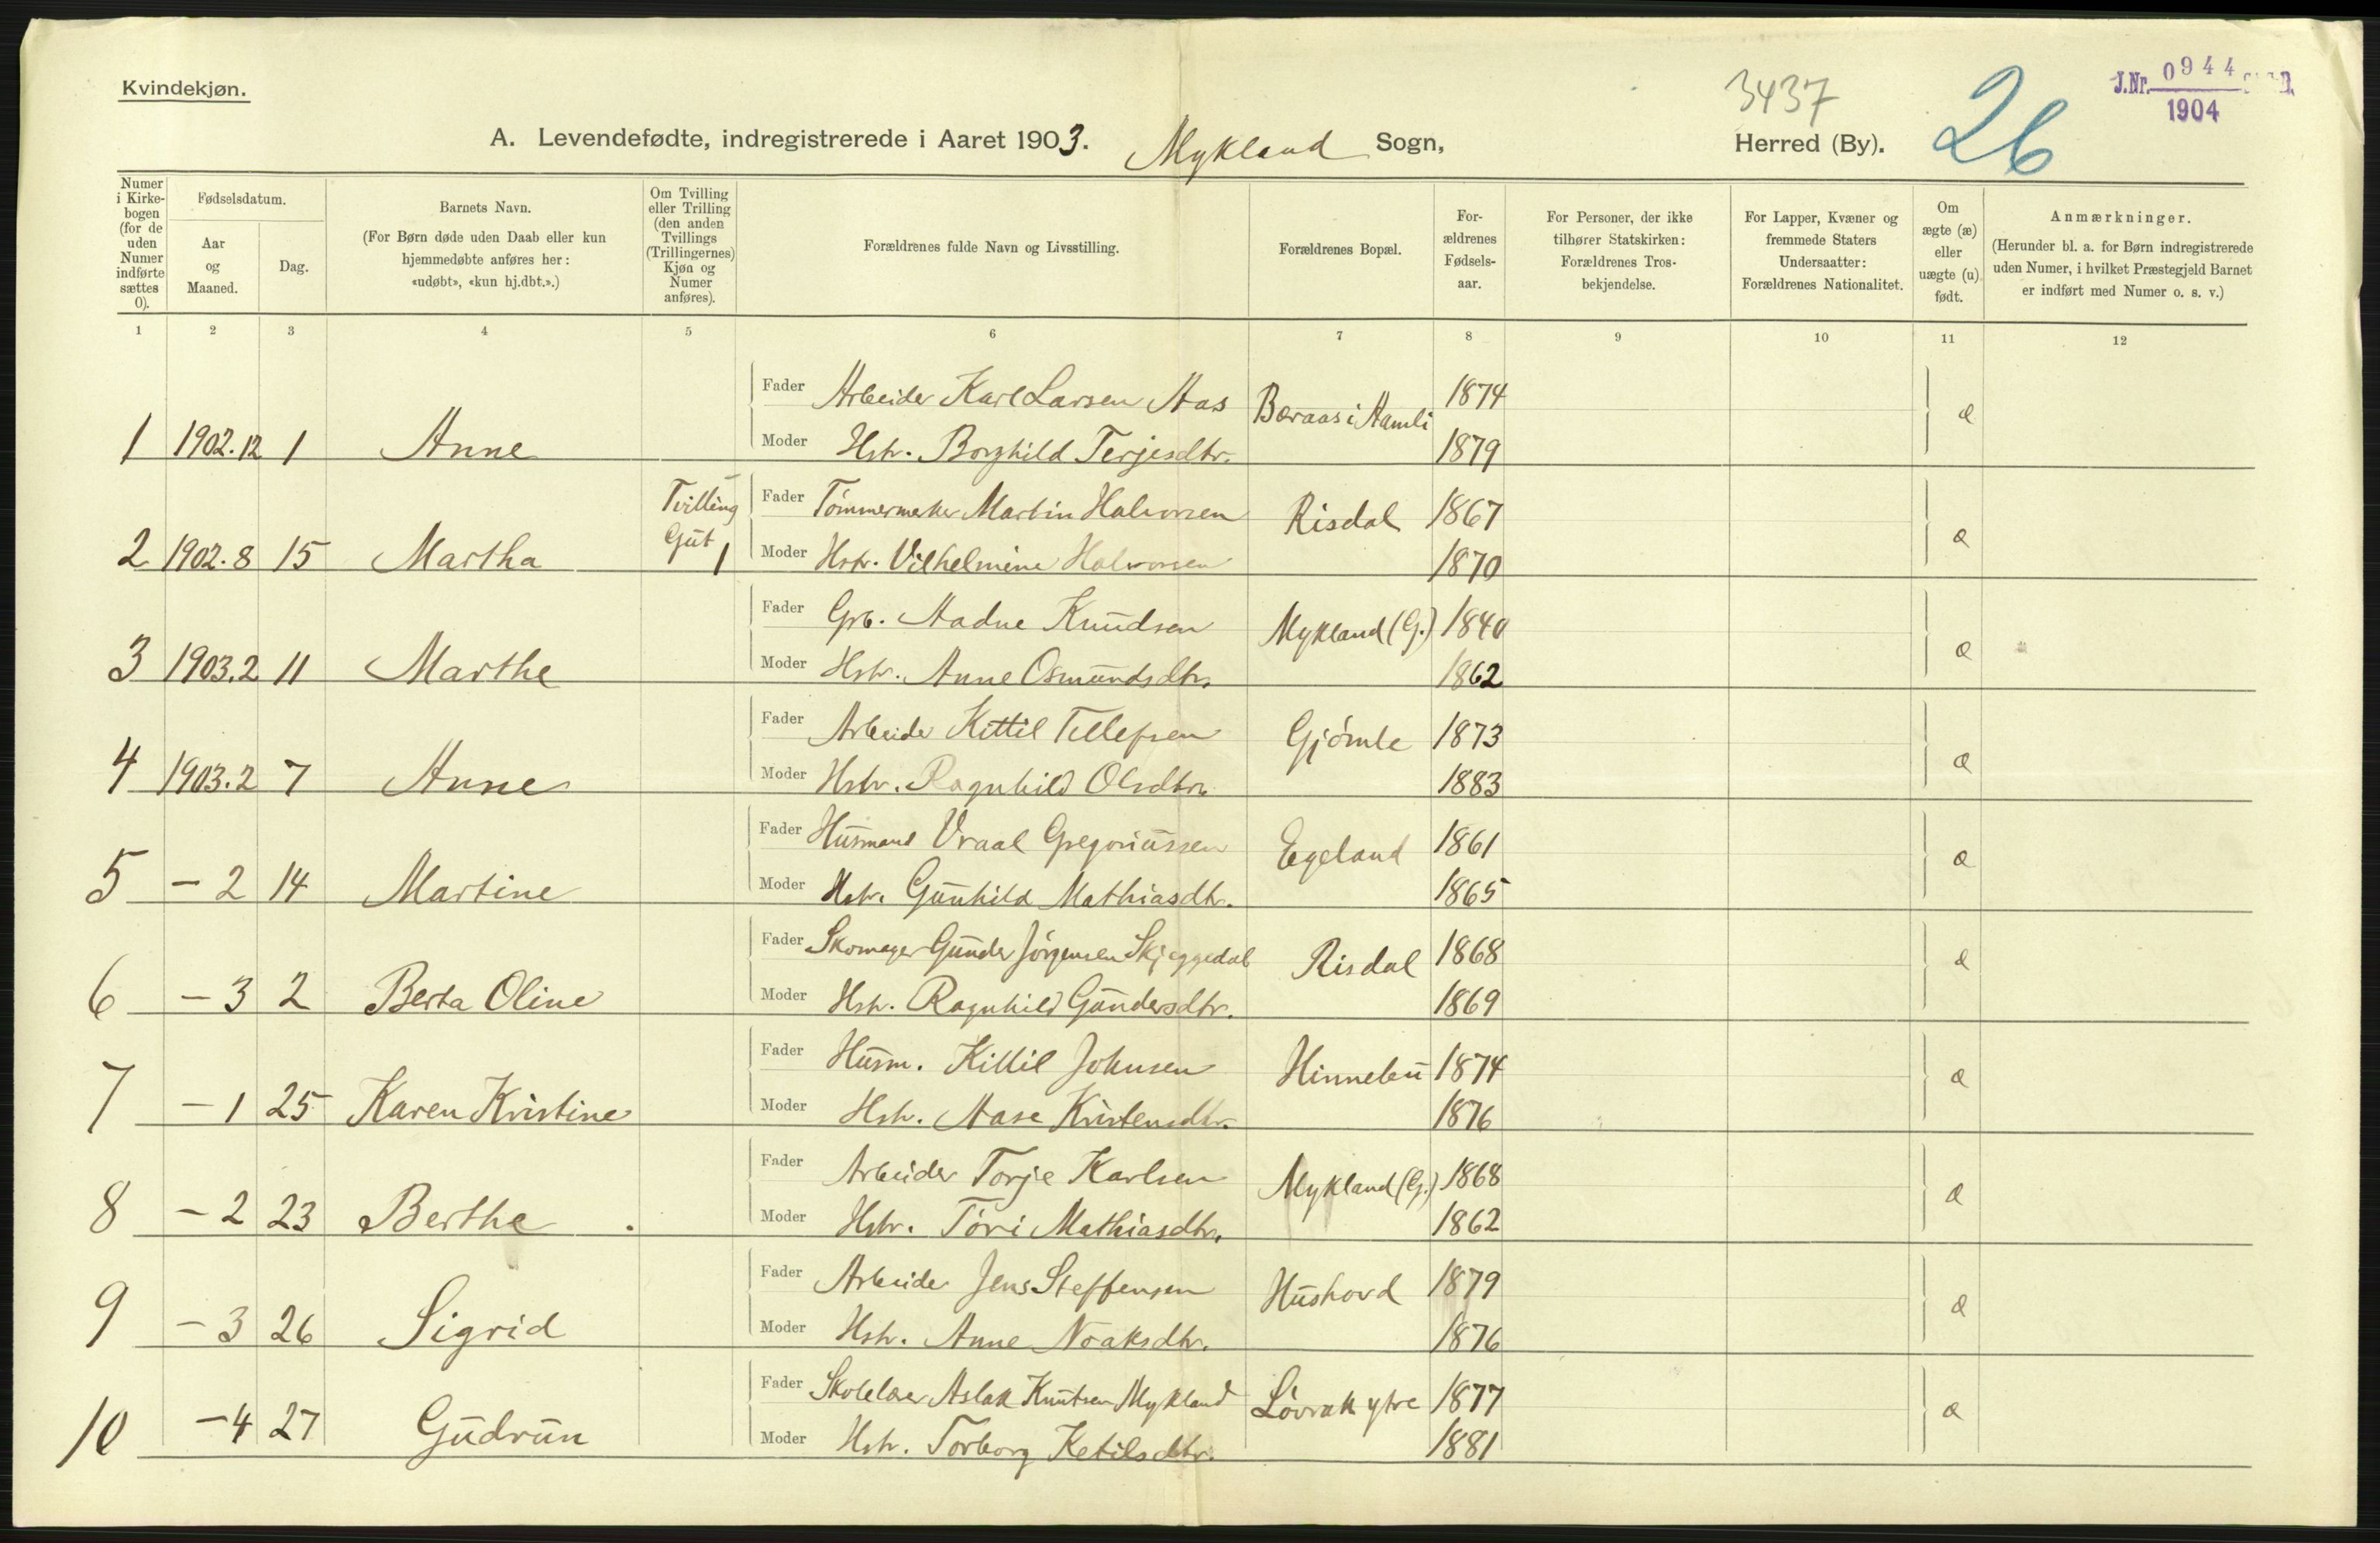 Kvindekjøn.
3437
J.Nr. 0944
1904
26
A. Levendefødte, indregistrerede i Aaret 1903. Mykland Sogn, Herred (By).
Numer i Kirkebogen (for de uden Numer indførte sættes 0).
Fødselsdatum.
Aar og Maaned.
Dag.
Barnets Navn.
(For Børn døde uden Daab eller kun hjemmedøbte anføres her: «udøbt», «kun hj.dbt.».)
Om Tvilling eller Trilling (den anden Tvillings (Trillingernes) Kjøn og Numer anføres).
Forældrenes fulde Navn og Livsstilling.
Forældrenes Bopæl.
Forældrenes Fødselsaar.
For Personer, der ikke tilhører Statskirken: Forældrenes Trosbekjendelse.
For Lapper, Kvæner og fremmede Staters Undersaatter: Forældrenes Nationalitet.
Om ægte (æ) eller uægte (u) født.
Anmærkninger.
(Herunder bl. a. for Børn indregistrerede uden Numer, i hvilket Præstegjeld Barnet er indført med Numer o. s. v.)
1 2 3 4 5 6 7 8 9 10 11 12
Fader Arbeider Karl Larsen Aas Boraas i Aamli 1874 æ
1 1902.12 1 Anne Moder Hstr. Borghild Terjesdtr. 1879
Tvilling Fader Tømmermerker Martin Halvorsen Risdal 1867 æ
2 1902.8 15 Martha Gut 1 Moder Hstr. Vilhelmine Halvorsen 1870
Fader Grb. Aadne Knudsen Mykland (G.) 1840 æ
3 1903.2 11 Marthe Moder Hstr. Anne Osmundsdtr. 1862
Fader Arbeider Kittil Tellefsen Gjømle 1873 æ
4 1903.2 7 Anne Moder Hstr. Ragnhild Olsdtr. 1883
Fader Husmand Vraal Gregoriussen Egeland 1861 æ
5 - 2 14 Martine Moder Hstr. Gunhild Mathiasdtr. 1865
Fader Skomager Gunder Jørgensen Skjeggedal Risdal 1868 æ
6 - 3 2 Berta Oline Moder Hstr. Ragnhild Gundersdtr. 1869
Fader Husm. Kittil Johnsen Hinnebu 1874 æ
7 - 1 25 Karen Kristine Moder Hstr. Aase Kristensdtr. 1876
Fader Arbeider Torje Karlsen Mykland (G.) 1868 æ
8 - 2 23 Berthe Moder Hstr. Tøri Mathiasdtr. 1862
Fader Arbeider Jens Steffensen Hushovd 1879 æ
9 - 3 26 Sigrid Moder Hstr. Anne Noaksdtr. 1876
Fader Skolelærer Aslak Knutsen Mykland Løvrak ytre 1877 æ
10 - 4 27 Gudrun Moder Hstr. Torborg Ketilsdtr. 1881